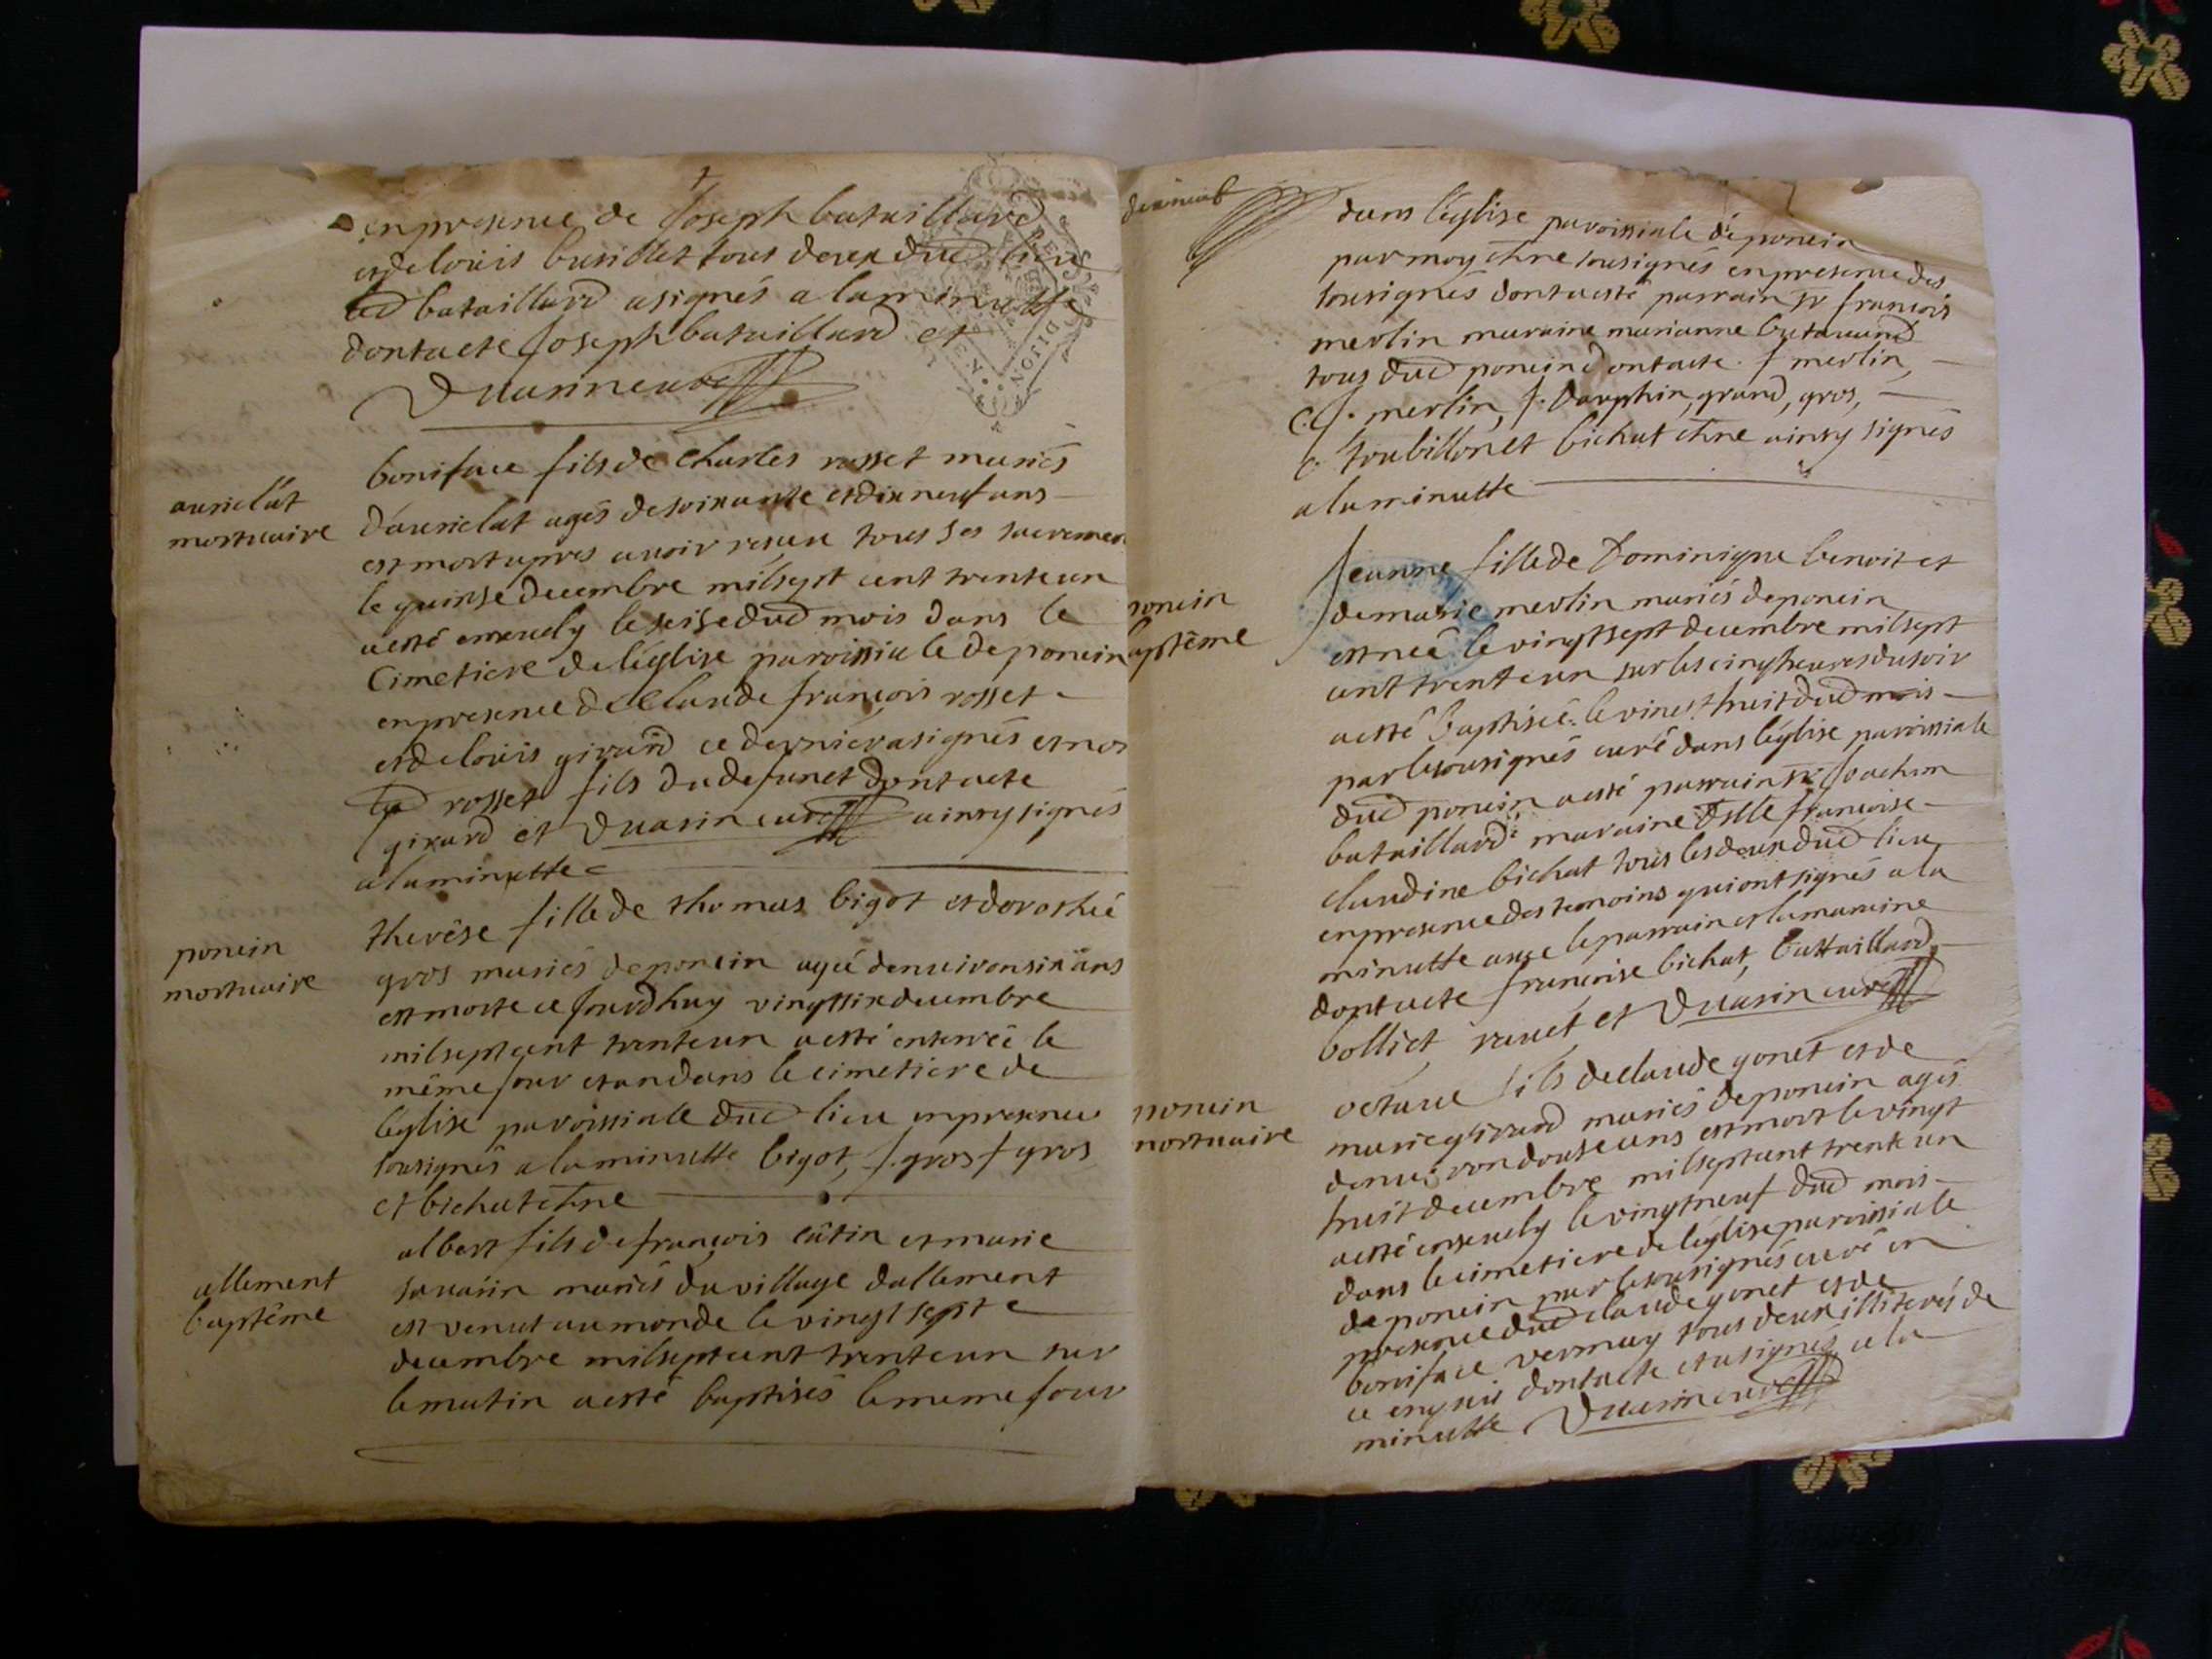 en presence de Joseph bataillard
et de lovis busillet tous deux dud lieu
led bataillard a signés a la minutte
dont acte Joseph bataillard et
auriclat
mortuaire
boniface fils de Charles rosset mariés
d'auriclat agés de soixante et dix neuf ans
est mort apres avoir reseu tous ses sacremen
le quinse decembre mil sept cent trente un
a esté ensevely le seise dud mois dans le
Cimetiere de l'église paroissiale de poncin
en presence de Claude françois rosset
et de lovis girard ce dernier a signés et non
led rosset fils du defunct dont acte
girard et Duasin curé ainsy signés
a la minutte
poncin
mortuaire
therêse fille de thomas bigot et dorothée
gros mariés de poncin agée d'environ six ans
est morte ce Jourdhuy vingt six decembre
mil sept cent trente un a esté enterrée le
même Jour et an dans le cimetiere de
l'église paroissialle dud lieu en presence
sousignés a la minutte bigot, f. gros f gros
et bichat
allement
baptême
albert fils de françois cûtin et marie
savarin mariés du village dallement
est venut au monde le vingt septe
decembre mil sept cent trente un sur
le matin a esté baptisés le meme Jour
dans l'église paroissiale de poncin
par moy sousignés en presence des
sousignés dont a esté parrain sr francois
merlin maraine marianne
tous dud poncin dont acte. f merlin,
C. f. merlin, f. Dauphin, grand, gros,
c. toubillon et bichat ainsy signés
a la minutte
poncin
aptême
Jeanne fille de Dominique benoit et
de marie merlin mariés de poncin
est née le vingt sept decembre mil sept
cent trente un sur les cinq heures du soir
a esté baptisée le vingt huit dud mois
par le sousignés curé dans l'église paroissiale
dud poncin a esté parrain sr Joachim
bataillard maraine dslle francoise
claudine bichat tous les deux dud lieu
en presence des temoins qui ont signés a la
minutte avec le parrain et la maraine
dont acte francoise bichat, battaillard,
bolliet ravet et Duasin curé
poncin
mortuaire
octave fils de claude gonet et de
marie girard mariés de poncin agés
denviron douse ans est mort le vingt
huit decembre mil sept cent trente un
a esté ensevely le vingt neuf dud mois
dans le cimetiere de l'église paroissiale
de poncin par le sousignés curé en
presence dud claude gonet et de
boniface vermay tous deux illiterés de
ce enquis dont acte et a signés a la
minutte Duasin curé